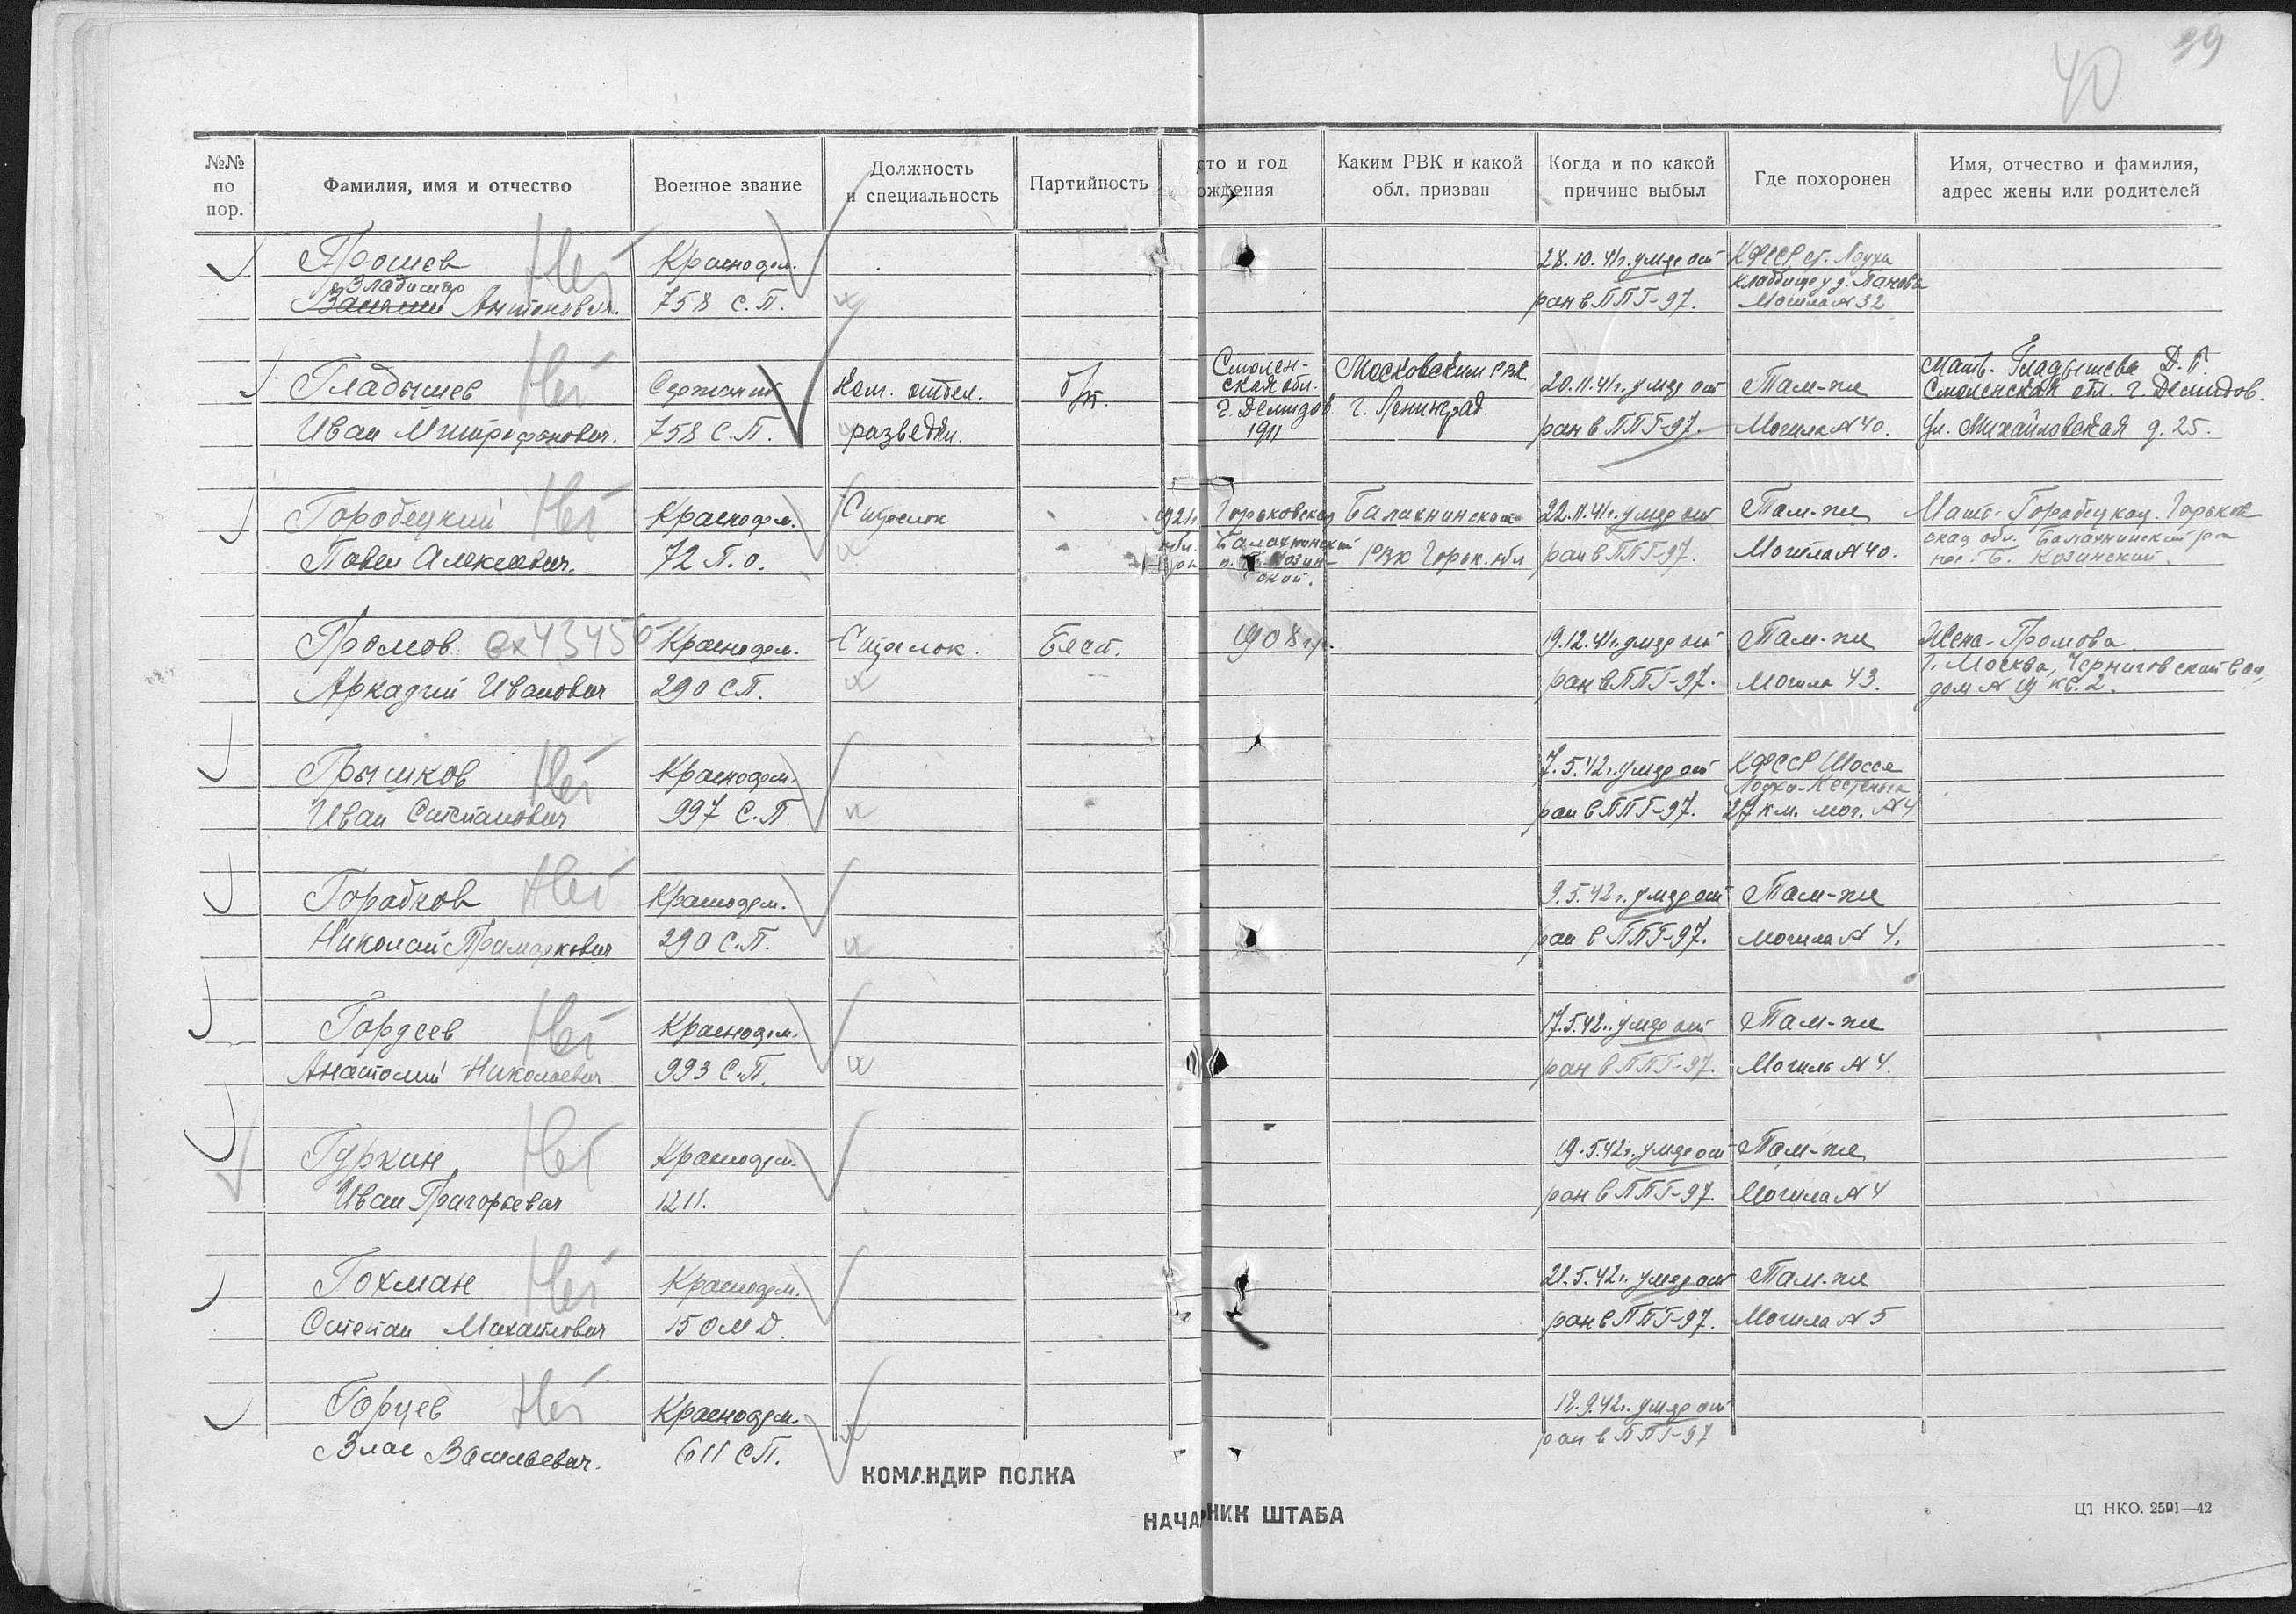 39
40
№№ по пор.
Фамилия, имя и отчество
Военное звание
Должность и специальность
Партийность
сто и год ождения
Каким РВК и какой обл. призван
Когда и по какой причине выбыл
Где похоронен
Имя, отчество и фамилия, адрес жены или родителей
Нет Красноарм. 28.10.41г. умер от КФССР ст. Лоухи
Владимир кладбище у д.
Антонович. 758 с.п. ран в ППГ-97. Могила № 32
Гладышев Нет Сержант Ком. отдел. б/п. Смолен-ская обл. г. Демидов 1911 Московским РВК г. Ленинград. 20.11.41г. умер от Там-же Мать. Гладышева Д.Г. Смоленская обл. г. Демидов.
Иван Митрофанович. 758 с.п. разведки. ран в ППГ-97. Могила № 40. Ул. Михайловская д. 25.
Городецкий Нет Красноарм. Стрелок 1921г. Горьковская обл. Балахнинский Балахнинским 22.11.41г. умер от Там-же Мать-Городецкая. Горьков
Павел Алексеевич. 72 п.о. РВК Горьк. обл ран в ППГ-97 Могила № 40. ская обл. Балахнинский р-н пос. Б. Козинский.
Громов вх 43450 Красноарм. Стрелок. Бесп. 1908 гр. 19.12.41г. умер от Там-же Жена-Громова
Аркадий Иванович 290 СП. ран в ППГ-97. Могила 43. г. Москва, Черниговский дом № 19 кв. 2.
Грышков Нет Красноарм. 7.5.42г. умер от КФССР Шоссе Лоухи-Кестеньга
Иван Степанович 997 С.П. ран в ППГ-97. 27 км. мог. № 4
Горабков Нет Красноарм. 9.5.42г. умер от Там-же
Николай 290 С.П. ран в ППГ-97. могила № 4.
Гордеев Нет Красноарм. 17.5.42г. умер от Там-же
Анатолий Николаевич 993 С.П. ран в ППГ-97. Могила № 4.
Гуркин Нет Красноарм. 19.5.42г. умер от Там-же
Иван Григорьевич 1211. ран в ППГ-97. Могила № 4
Гохман Нет Красноарм. 21.5.42г. умер от Там-же
Степан Михайлович 15 ОМД. ран в ППГ-97. Могила № 5
Горцев Нет Красноарм. 12.9.42г. умер от
Влас Васильевич. 611 СП. ран в ППГ-97
КОМАНДИР ПОЛКА
НАЧА НИК ШТАБА
ЦТ НКО. 2591—42